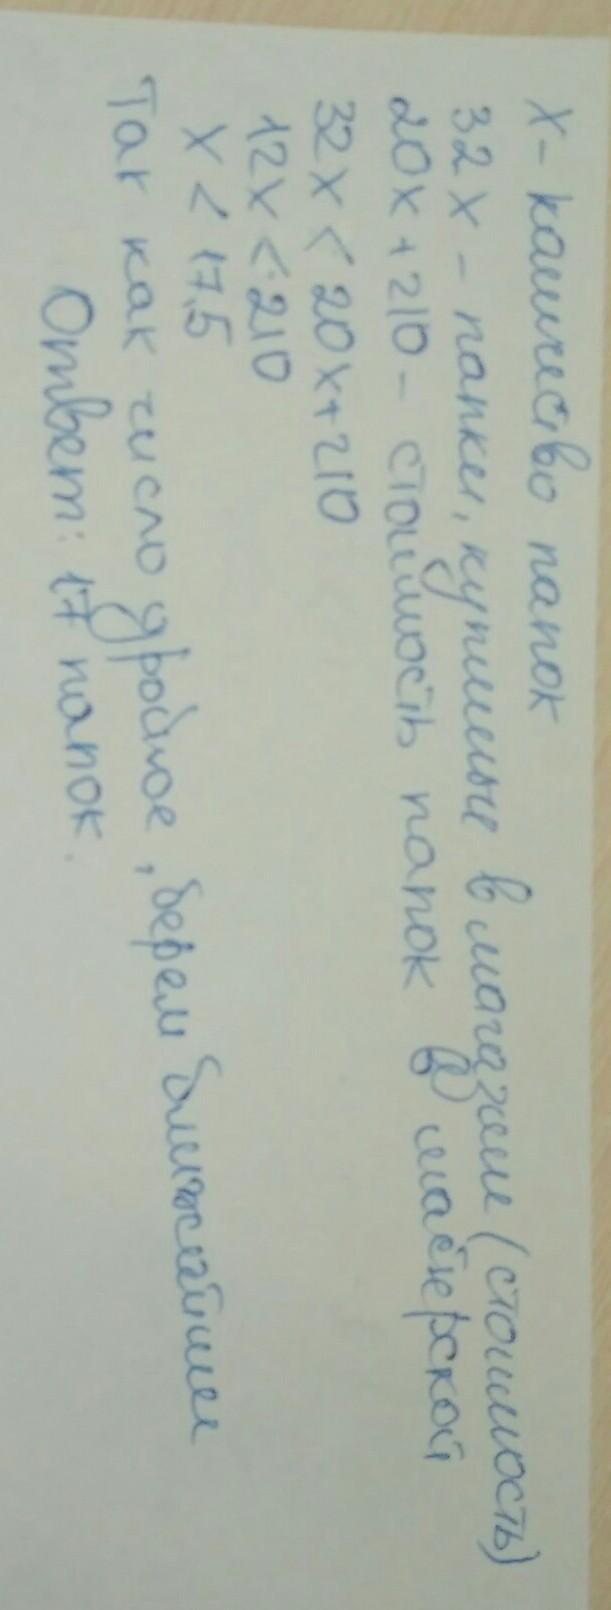 х - количество папок
32 х - папки, купленные в магазине (стоимость)
20х + 210 - стоимость папок в мастерской
32х < 20х + 210
12х < 210
х < 17,5
Так как число дробное, берем ближайшее
Ответ: 17 папок.